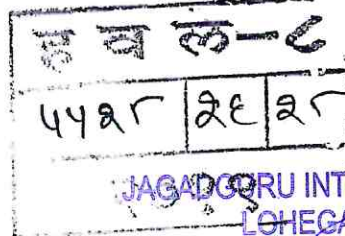 ह व ल - ८
५५२८ २६ २८
JAGADGURU INT
LOHEGA